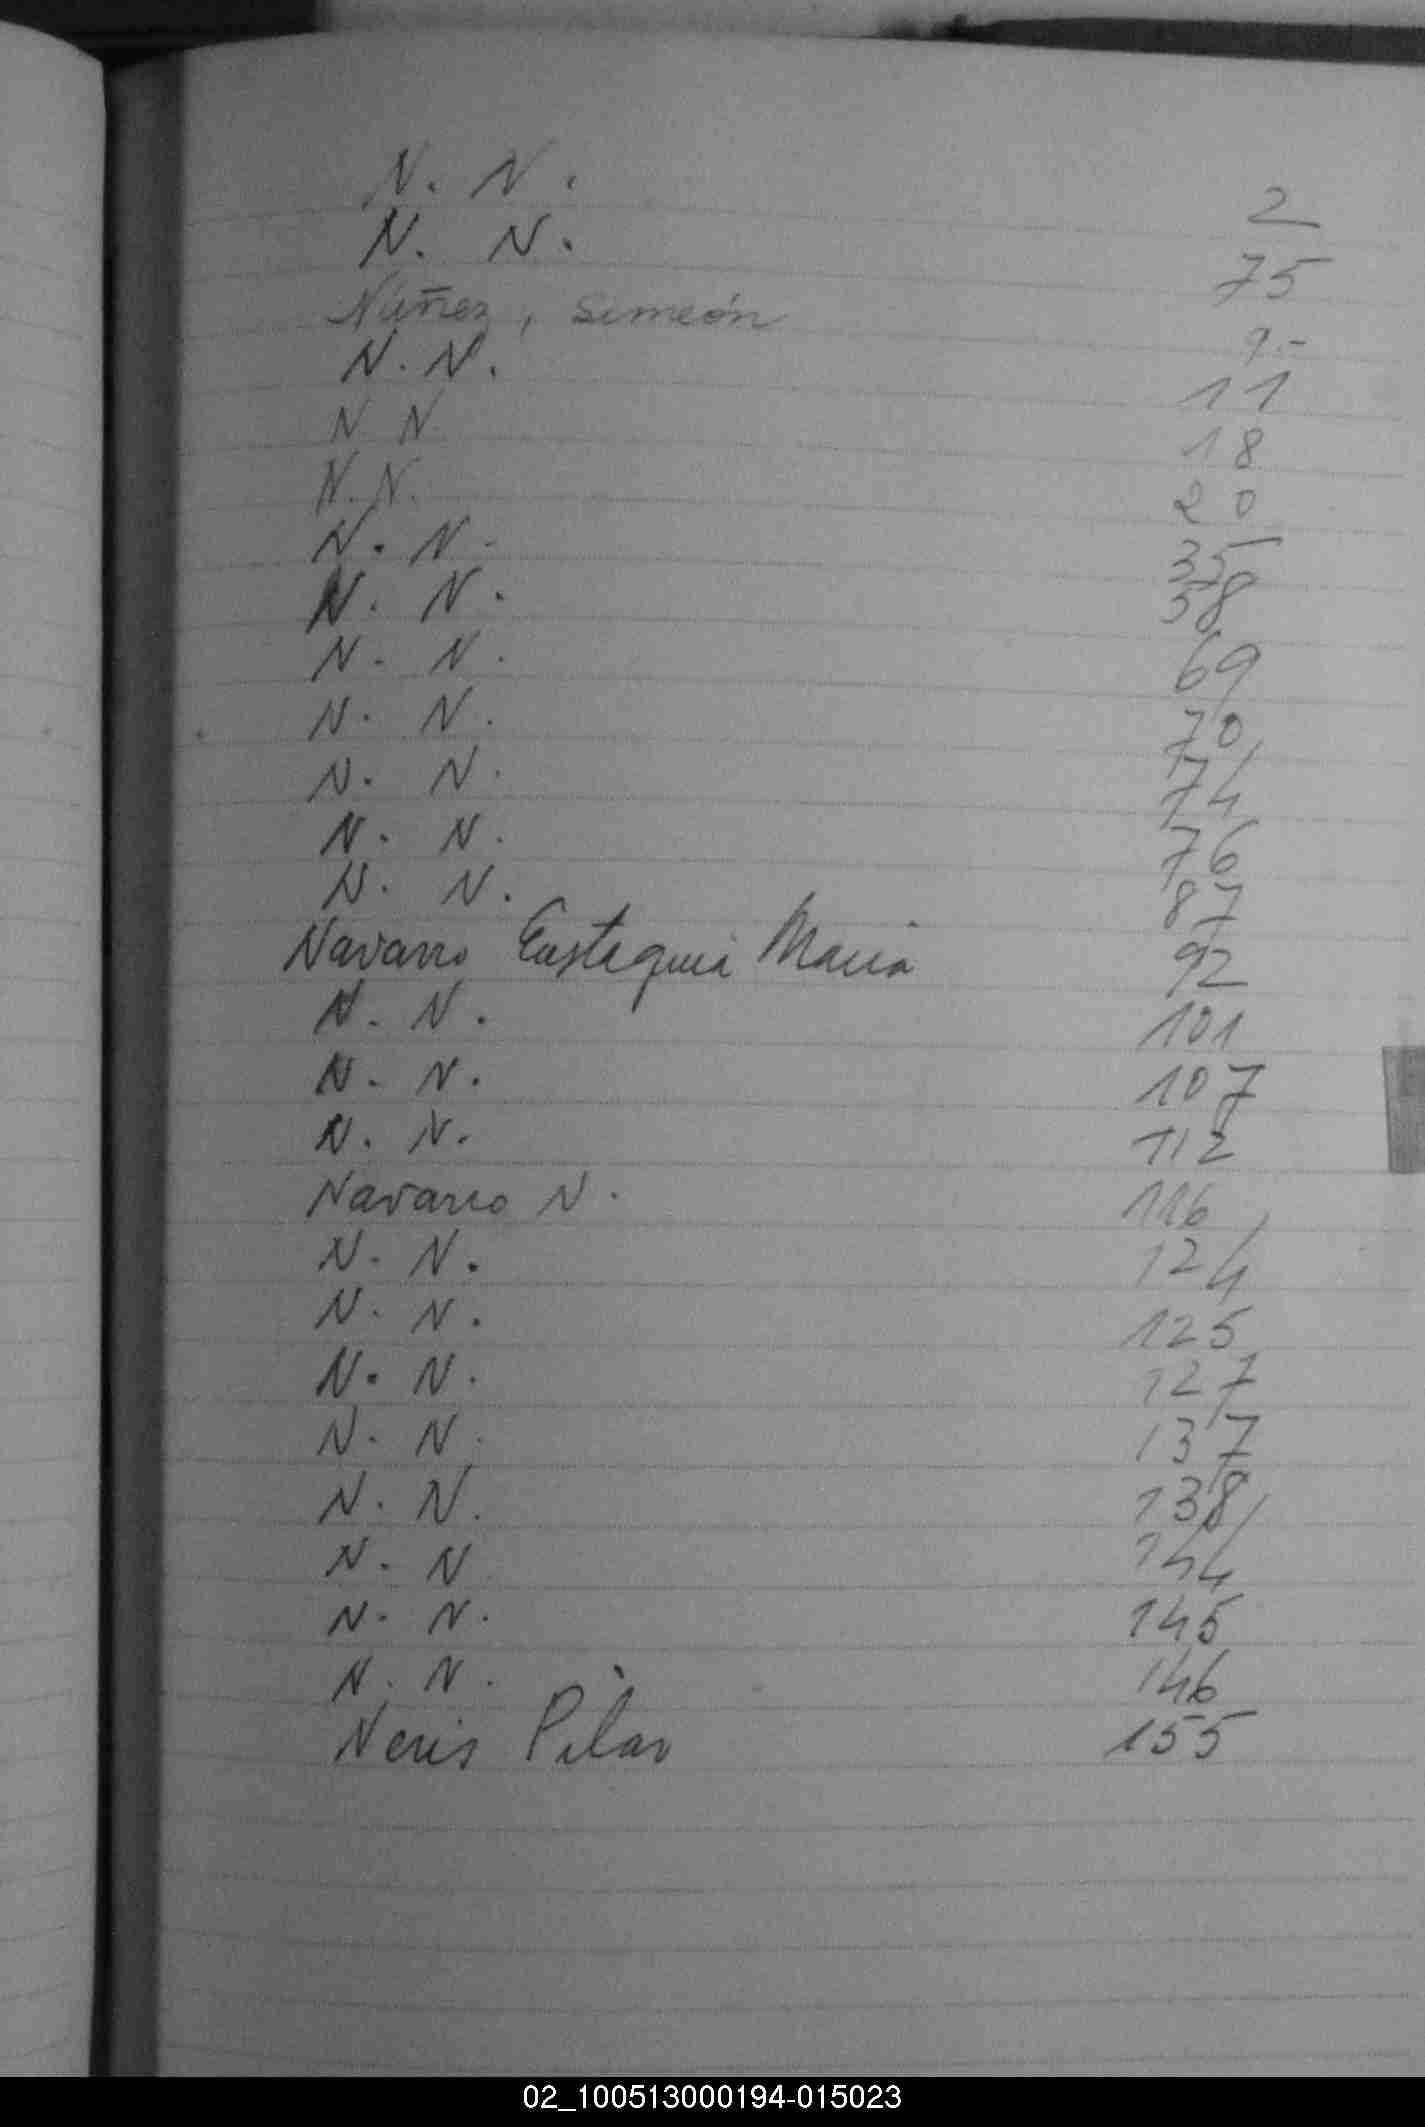 N. N. 2
N. N. 75
Núñez, Simeón 9.-
N. N. 11
N N 18
N. N. 20
N. N. 35
N. N. 58
N. N. 69
N. N. 70
N. N. 74
N. N. 76
N. N. 87
Navarro Eustaquia Maria 92
N. N. 101
N. N. 107
N. N. 112
Navarro N. 116
N. N. 124
N. N. 125
N. N. 127
N. N. 137
N. N. 138
N. N 144
N. N. 145
N. N. 146
Neris Pilar 155
02_100513000194-015023